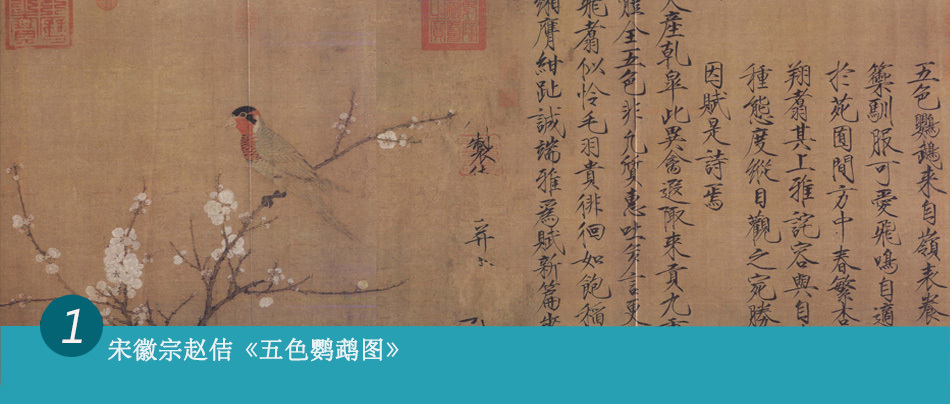 五色鸚鵡來自嶺表養
籞馴服可愛飛鳴自適
於苑囿間方中春繁杏
翔翥其上雅詫容與自
種態度縱目觀之宛勝
因賦是詩焉
天產乾皋此異禽遐陬來貢九重
體全五色非凡質惠吐多言更
飛翥似憐毛羽貴徘徊如飽稻
緗膺紺趾誠端雅爲賦新篇步
製
并
1
宋徽宗赵佶《五色鹦鹉图》